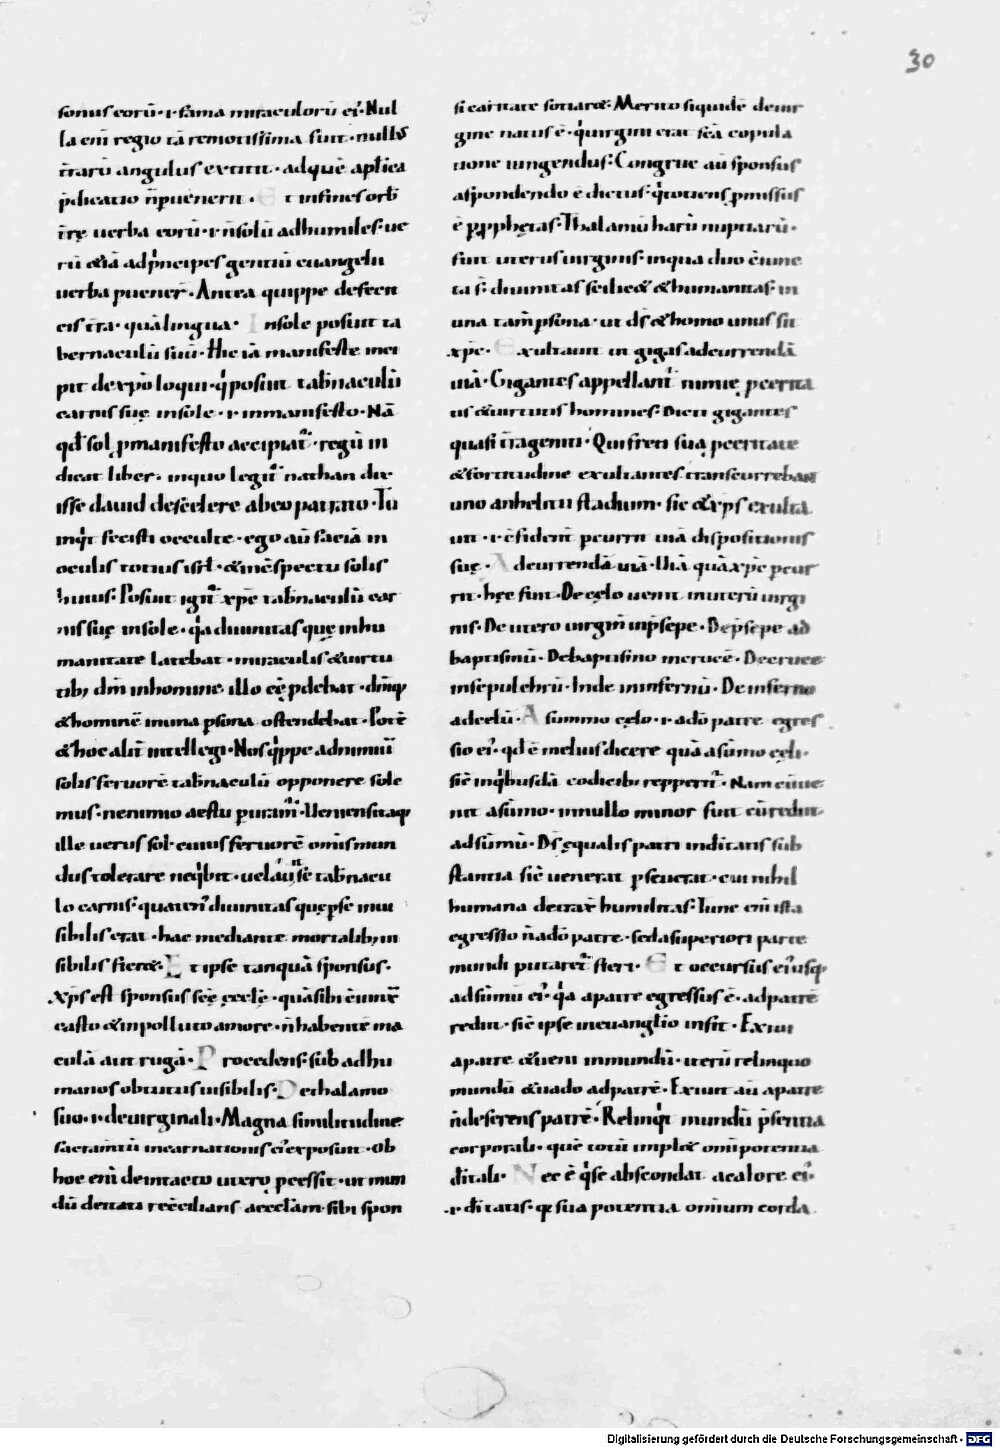 30
sonus eorū · ı · fama miraculorū eı᾿ · Nul
la enī regio tā remotissima fuit · nullꝰ
t̄rarū angulus extitit · ad quē aptīca
p̄dicatio n̄ puenerit · Et in fines orb̄
t̄rę uerba eorū · ı · n̄ solū ad humiles · ue
rū &iā ad pⁱncipes gentiū euangelii
uerba puener̄ · Antea quippe defecit
eis t̄ra · quā lingua · In sole posuit ta
bernaculū suū · Hic iā manifeste inci
pit de xp̄o loqui · qⁱ posuit tab̄naculū
carnis suę in sole · ı · in manifesto · Nā
qd̄ sol p manifesto accipiat᷑ · regū in
dicat liber · in quo legit᷑ nathan dix
isse dauid de scelere ab eo patrato · Tu
inqⁱt fecisti occulte · ego aū faciā in
oculis totius isrl̄ · & in c̄spectu solis
huius · Posuit igit᷑ xp̄c tab̄naculū car
nis suę in sole · qⁱa diuinitas quę in hu
manitate latebat · miraculis & uirtu
tib; dm̄ in homine illo eē pdebat · dm̄q;
& hominē in una psona ostendebat · Potē
& hoc alit̄ intellegi · Nos qⁱppe ad nimiū
solis feruorē tab̄naculū opponere sole
mus · ne nimio aestu puram᷑ · Uerens itaq;
ille uerus sol · cuius feruorē om̄is mun
dus tolerare neqⁱbit · uelauit se tab̄nacu
lo carnis · quatenꝰ diuinitas quę p se inui
sibilis erat · hac mediante mortalib; in
sibilis fier& · Et ipse tanquā sponsus ·
xp̄s est sponsus scē ęcclę · quā sibi c̄iunx̄
casto & inpolluto amore · n̄ habentē ma
culā aut rugā · Procedens · sub adhu
manos obtutus uisibilis · De thalamo
suo · ı · de uirginali · Magna similitudine
sacram̄tū incarnationis eı᾿ exposuit · Ob
hoc enī de intacto utero pcessit · ut mun
dū deitati recc̄ilians aecclām sibi spon
si caritate sotiar& · Merito siquidē de uir
gine natus ē · qⁱ uirgini erat scā copula
tione iungendus · Congrue aū sponsus
a spondendo ē dictus · qⁱ totiens pmissus
ē p pphętas · Thalamū harū nuptiarū ·
fuit uterus uirginis · in qua duo c̄iunc
ta s̄ · diuinitas scilic& & humanitas · in
una tam̄ psona · ut ds̄ & homo unus sit
xp̄c · Exultauit ut gigas ad currendā
uiā · Gigantes appellant᷑ nimię pcerita
tis & uirtutis homines · Dicti gigantes
quasi t̄rageniti · Qui freti sua pceritate
& fortitudine exultantes transcurrebant
uno anhelitu stadium · sic & xp̄s exulta
uit · ı · c̄fident̄ pcurrit uiā dispositionis
suę · Ad currendā uiā · Uia quā xp̄c pcur
rit · hęc fuit · De cęlo uenit in uterū uirgi
nis · De utero uirginis in p̄sepe · De p̄sepe ad
baptismū · De baptismo in crucē · De cruce
in sepulchrū · Inde in infernū · De inferno
ad cęlū · A summo cęlo · ı · a dō patre egres
sio eı᾿ · qd̄ ē melius dicere quā a sūmo cęli ·
sic̄ in qⁱbusdā codicib; repperit᷑ · Nam cū ue
nit a sūmo · in nullo minor fuit cū redit
ad sūmū · Ds̄ ęqualis patri in ditatis sub
stantia sic̄ uenerat pseuerat · cui nihil
humana detrax̄ humilitas · Tunc enī ista
egressio n̄ a dō patre · sed a superiori parte
mundi putaret᷑ fieri · Et occursus eı᾿ usq;
ad sūmū eı᾿ · qⁱa a patre egressus ē · ad patrē
redit · sic̄ ipse in euanglio insit · Exiui
a patre & ueni in mundū · iterū relinquo
mundū & uado ad patrē · Exiuit aū a patre
n̄ deserens patrē · Relinqⁱt mundū p̄sentia
corporali · quē totū impl& om̄ipotentia
d̄itali · Nec ē qⁱ se abscondat a calore eı᾿ ·
· ı · d̄itatis · q; sua potentia omnium corda
Digitalisierung gefördert durch die Deutsche Forschungsgemeinschaft - DFG